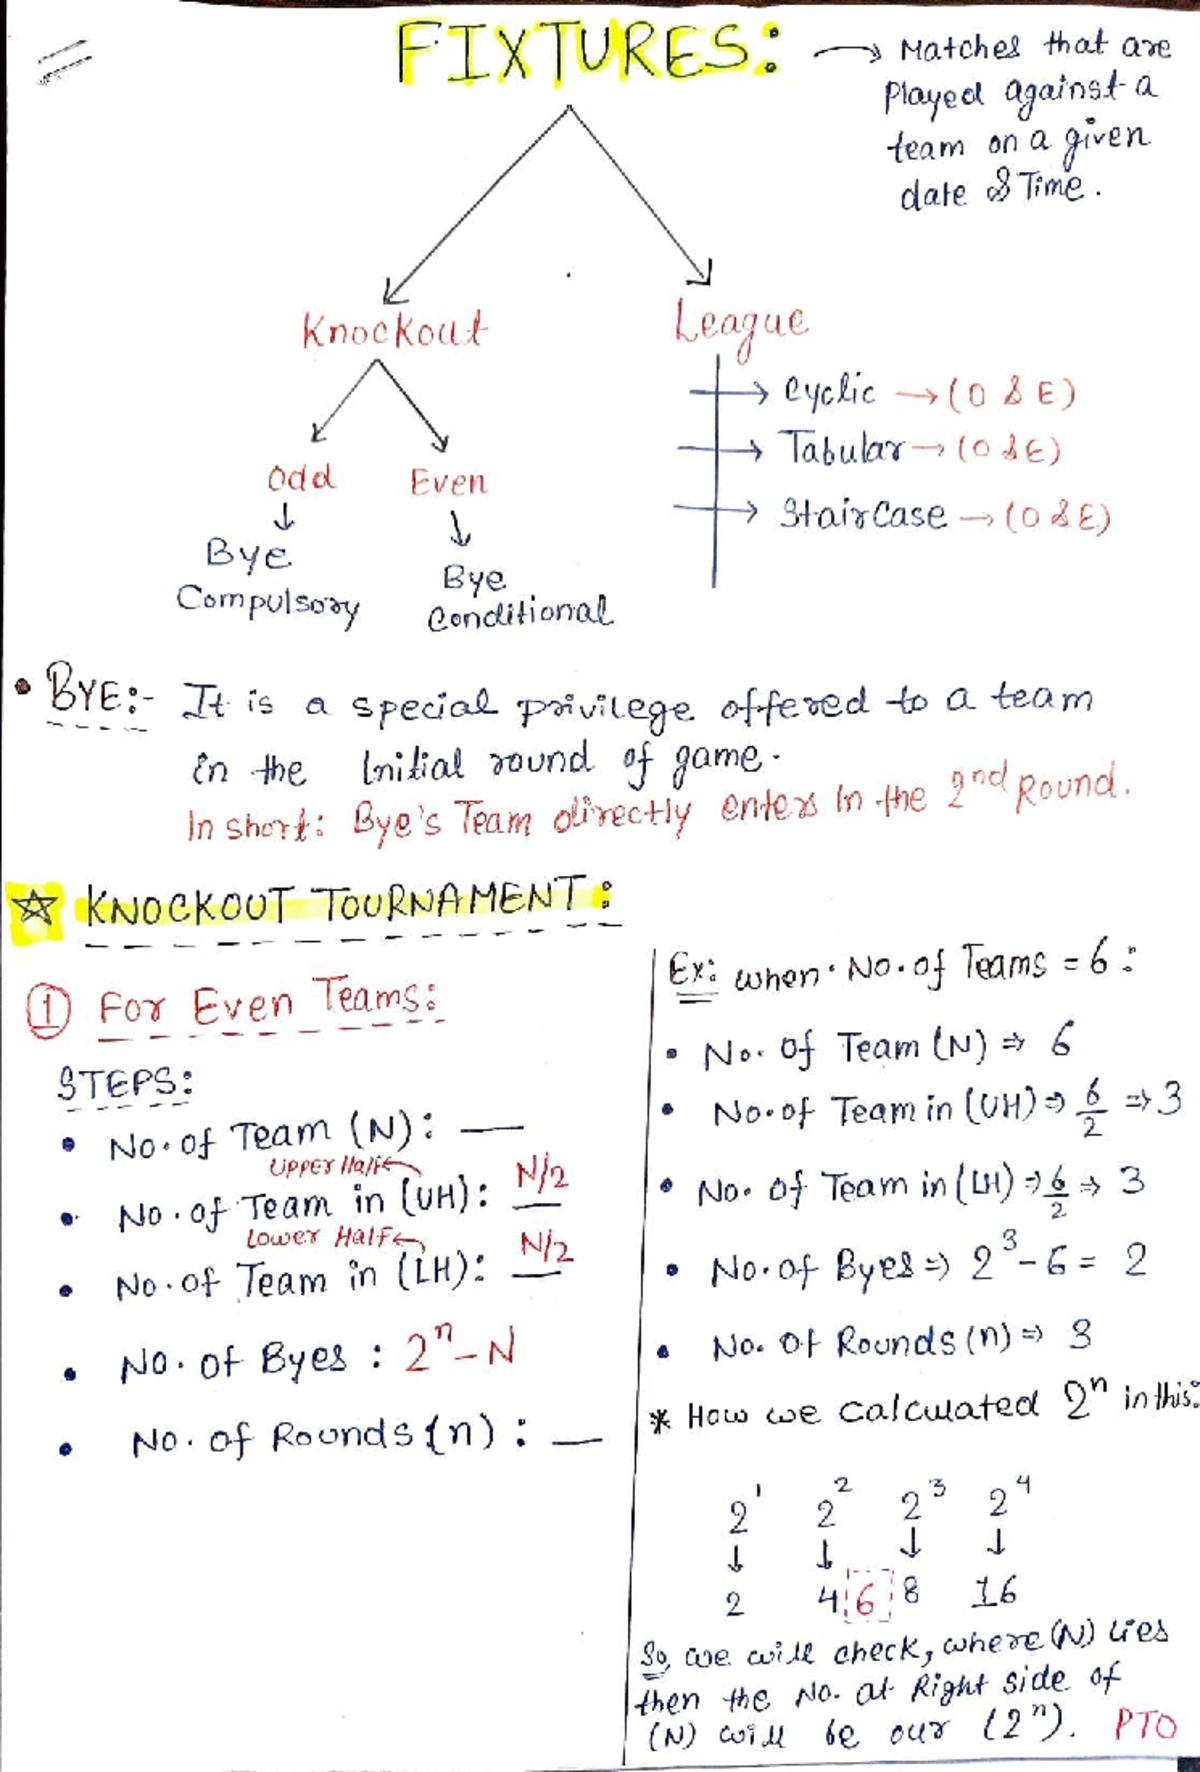 FIXTURES: → Matches that are
Played against a
team on a given
date & Time.
Knockout
League
Cyclic → (O & E)
Tabular → (O & E)
StairCase → (O & E)
Odd Even
Bye
Compulsory
Bye
Conditional
• BYE:- It is a special privilege offered to a team
in the Initial round of game.
In short: Bye's Team directly enters In the 2nd Round.
☆ KNOCKOUT TOURNAMENT:
① For Even Teams:
STEPS:
• No. of Team (N): __
Upper Half
• No. of Team in (UH): N/2
Lower Half
• No. of Team in (LH): N/2
• No. of Byes : 2ⁿ - N
• No. of Rounds (n) : __
Ex: when No. of Teams = 6 :
• No. of Team (N) ⇒ 6
• No. of Team in (UH) ⇒ 6/2 ⇒ 3
• No. of Team in (LH) ⇒ 6/2 ⇒ 3
• No. of Byes ⇒ 2³ - 6 = 2
• No. of Rounds (n) ⇒ 3
* How we calculated 2ⁿ in this:
2¹ 2² 2³ 2⁴
↓ ↓ ↓ ↓
2 4 6 8 16
So, we will check, where (N) lies
then the No. at Right side of
(N) will be our (2ⁿ). PTO